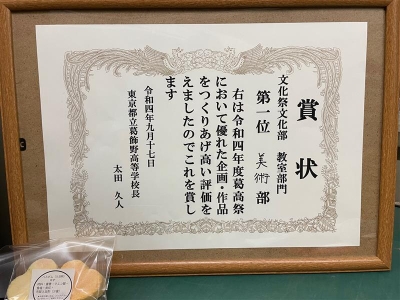 賞状
文化祭文化部 教室部門
第一位 美術部
右は令和四年度葛高祭
において優れた企画・作品
をつくりあげ高い評価を
えましたのでこれを賞し
ます
令和四年九月十七日
東京都立葛飾野高等学校長
太田 久人